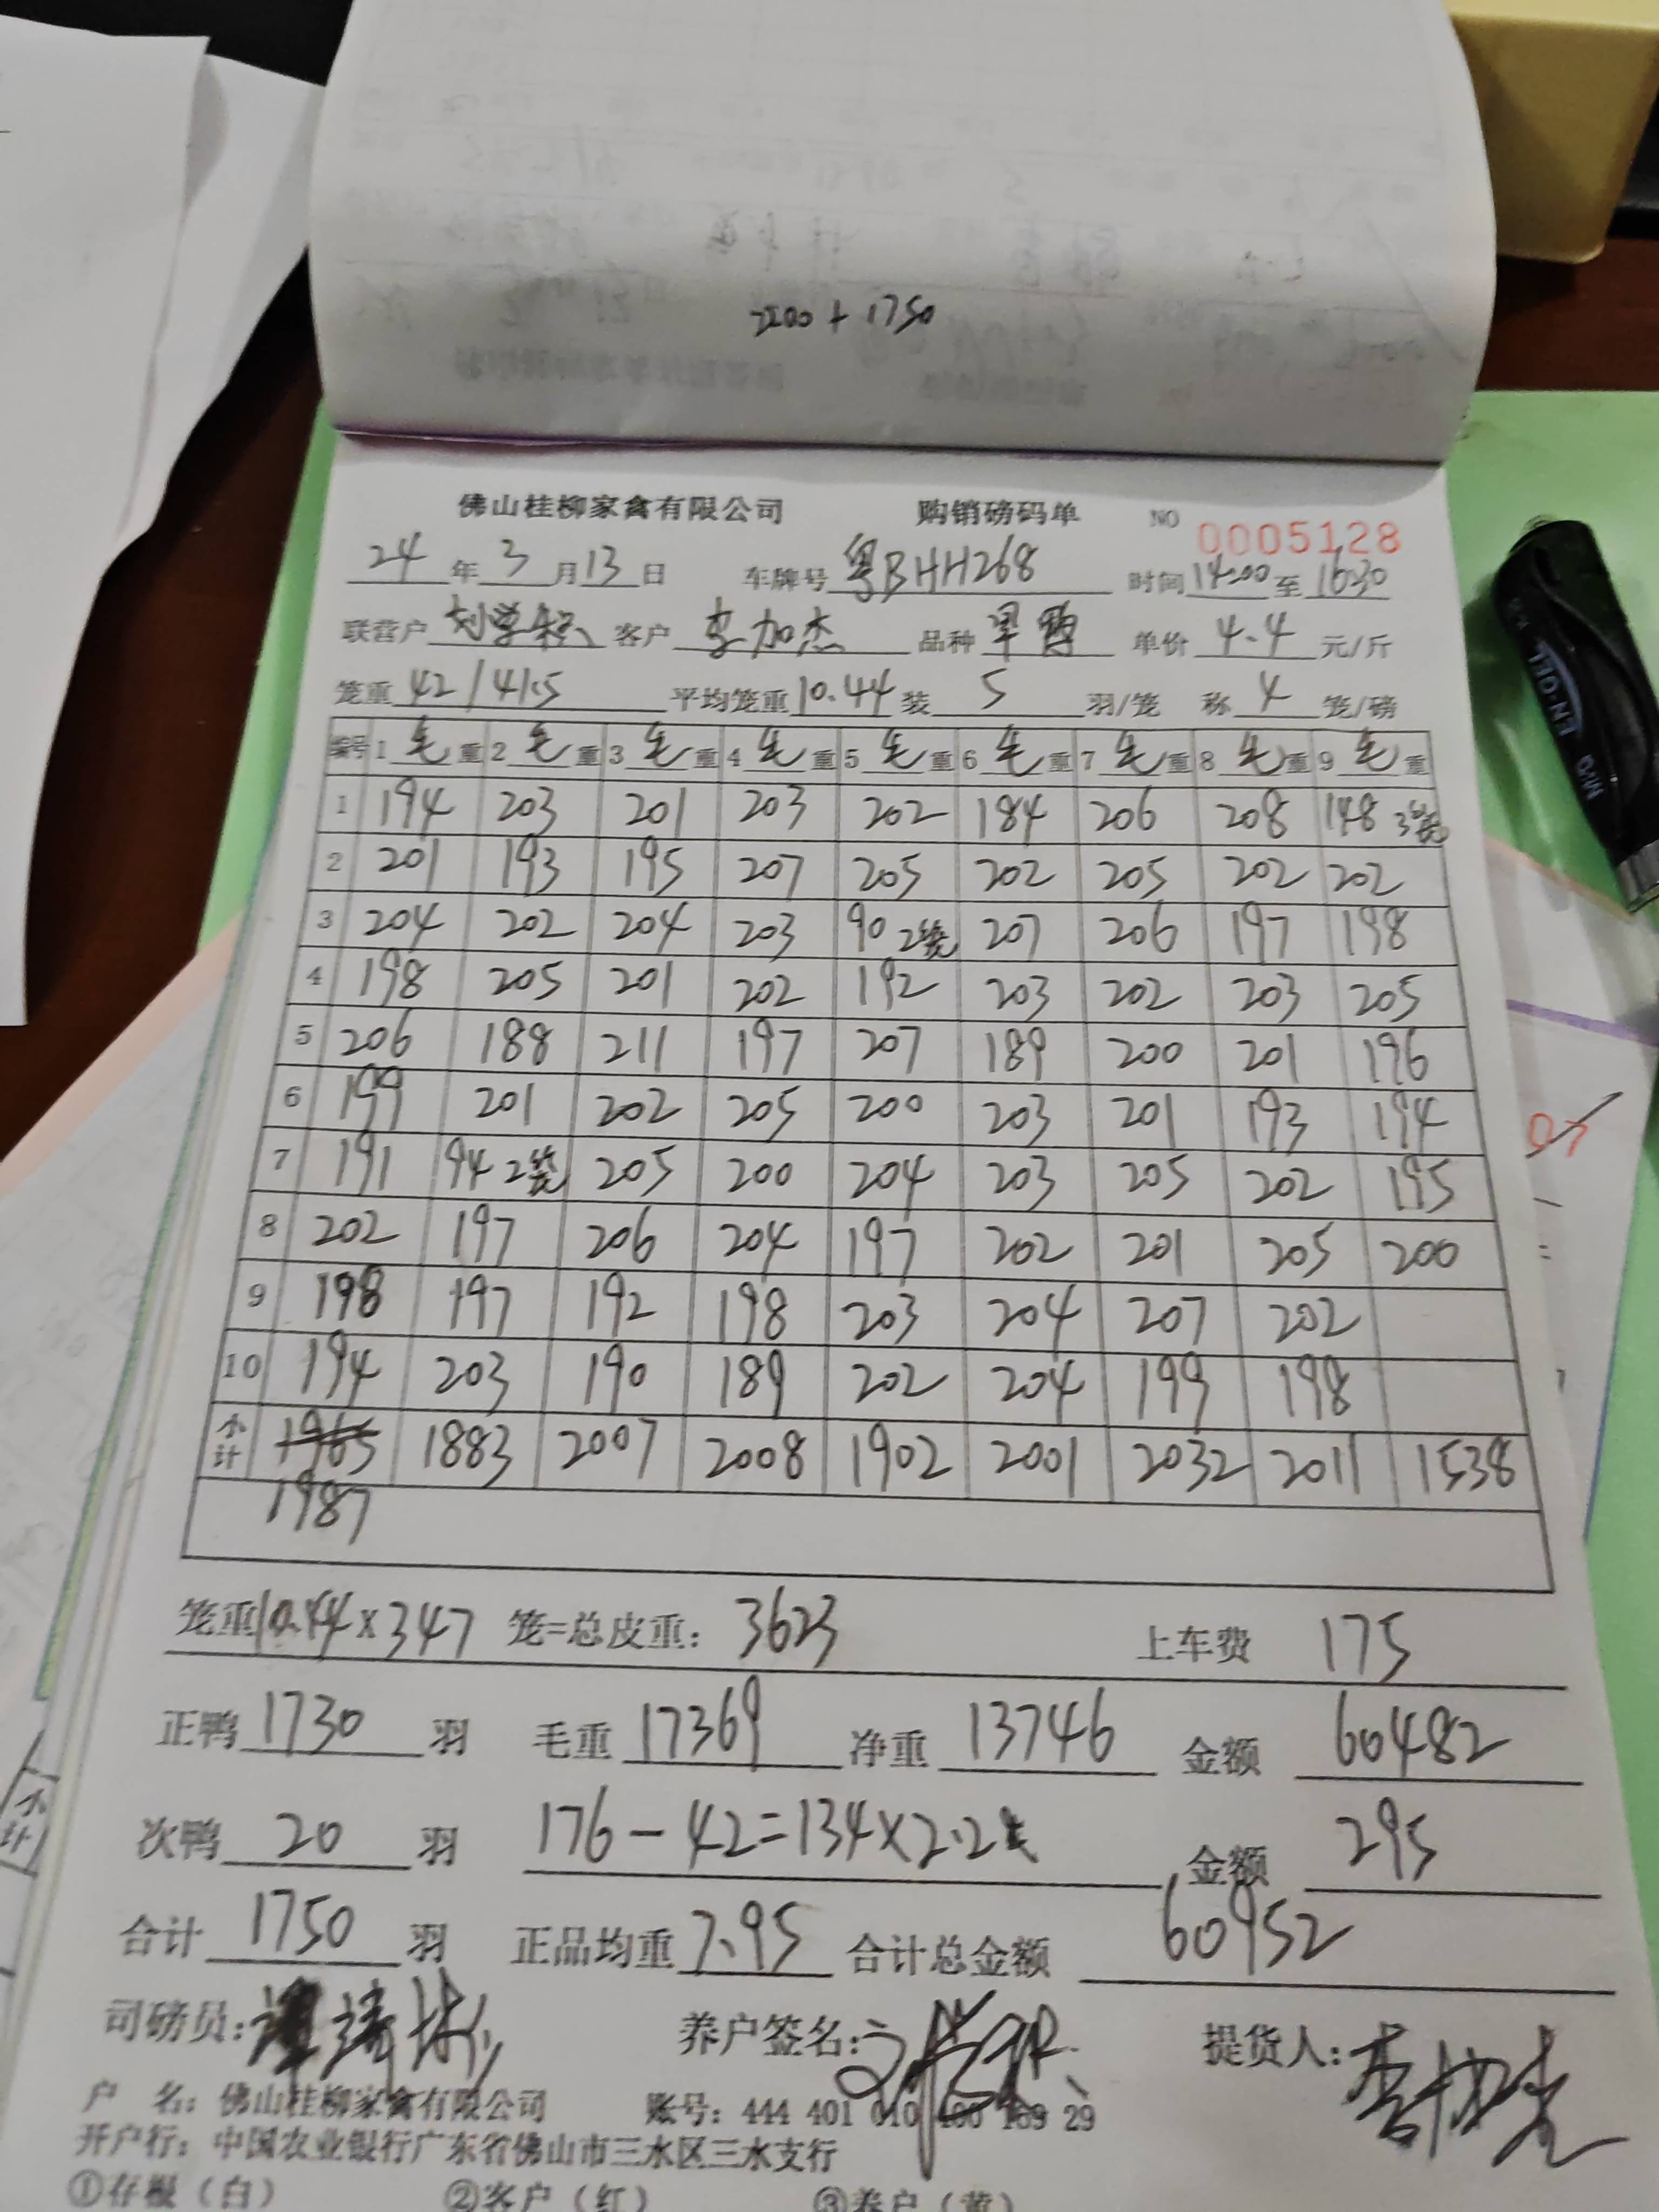 2200 + 1750
佛山桂柳家禽有限公司 购销磅码单 NO 0005128
24 年 3 月 13 日 车牌号 粤BHH268 时间 14:00 至 16:30
联营户 客户 李加杰 品种 单价 4.4 元/斤
笼重 42 / 41.5 平均笼重 10.44 装 5 羽/笼 称 4 笼/磅
编号 1 毛 重 2 毛 重 3 毛 重 4 毛 重 5 毛 重 6 毛 重 7 毛 重 8 毛 重 9 毛 重
1 194 203 201 203 202 184 206 208 148 3笼
2 201 193 195 207 205 202 205 202 202
3 204 202 204 203 90 2笼 207 206 197 198
4 198 205 201 202 192 203 202 203 205
5 206 188 211 197 207 189 200 201 196
6 199 201 202 205 200 203 201 193 194
7 191 94 2笼 205 200 204 203 205 202 195
8 202 197 206 204 197 202 201 205 200
9 198 197 192 198 203 204 207 202
10 194 203 190 189 202 204 199 198
小计 1965 1883 2007 2008 1902 2001 2032 2011 1538
1987
笼重 10.44 x 347 笼=总皮重: 3623 上车费 175
正鸭 1730 羽 毛重 17369 净重 13746 金额 60482
次鸭 20 羽 176 - 42 = 134 x 2.2 金额 295
合计 1750 羽 正品均重 7.95 合计总金额 60952
司磅员: 养户签名: 提货人:
户 名: 佛山桂柳家禽有限公司 账号: 444 401 010 400 169 29
开户行: 中国农业银行广东省佛山市三水区三水支行
①存根(白) ②客户(红) ③养户(黄)
小计